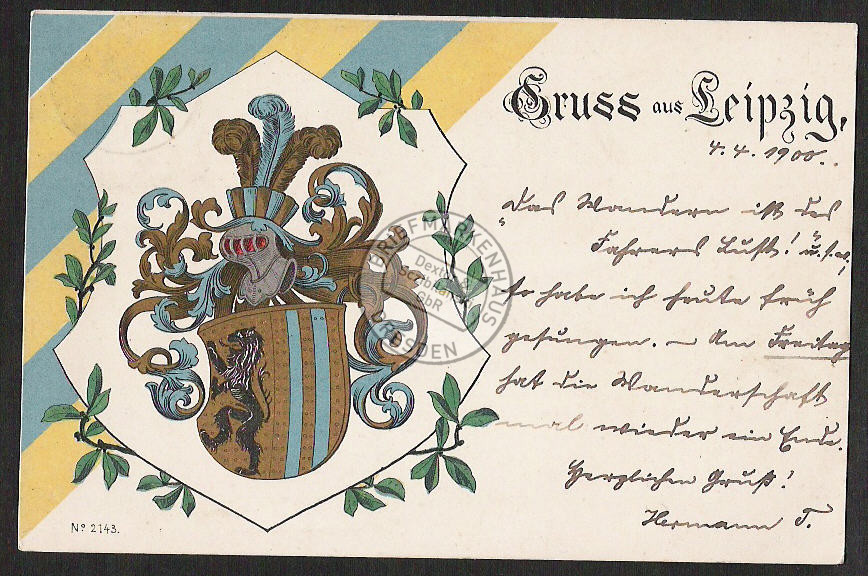 Gruss aus Leipzig,
4. 4. 1900.
„Das Wandern ist des
Fahrers Lust!“ u.s.w.,
so habe ich heute früh
gesungen. – Am Freitag
hat die Wanderschaft
mal wieder ein Ende.
Herzlichen Gruß!
Hermann T.
No. 2143.
BRIEFMARKENHAUS
DRESDEN
GbR